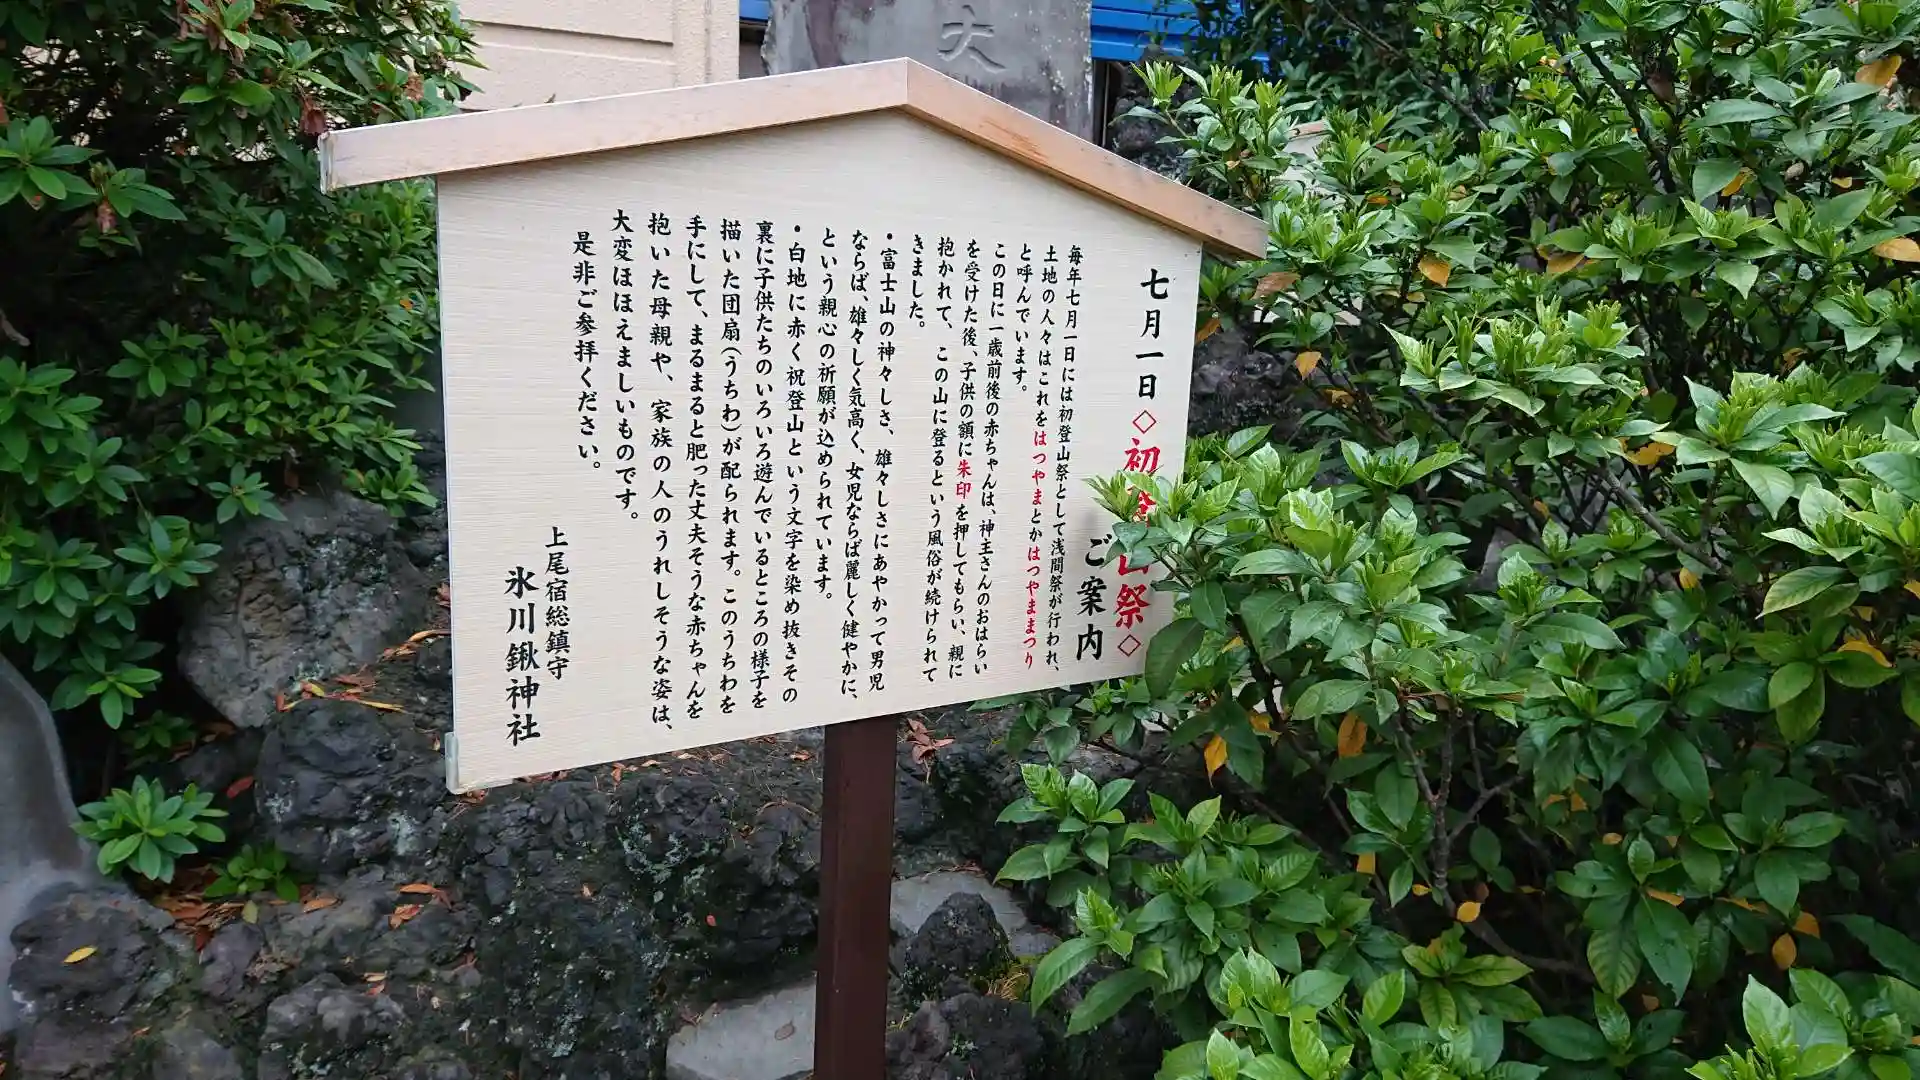 大
七月一日◇初登山祭◇
ご案内
毎年七月一日には初登山祭として浅間祭が行われ、
土地の人々はこれをはつやまとかはつやままつり
と呼んでいます。
この日に一歳前後の赤ちゃんは、神主さんのおはらい
を受けた後、子供の額に朱印を押してもらい、親に
抱かれて、この山に登るという風俗が続けられて
きました。
・富士山の神々しさ、雄々しさにあやかって男児
ならば、雄々しく気高く、女児ならば麗しく健やかに、
という親心の祈願が込められています。
・白地に赤く祝登山という文字を染め抜きその
裏に子供たちのいろいろ遊んでいるところの様子を
描いた団扇(うちわ)が配られます。このうちわを
手にして、まるまると肥った丈夫そうな赤ちゃんを
抱いた母親や、家族の人のうれしそうな姿は、
大変ほほえましいものです。
是非ご参拝ください。
上尾宿総鎮守
氷川鍬神社